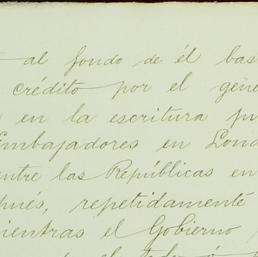 al fondo de él bas
crédito por el géne
en la escritura pu
Embajadores en Lond
entre las Repúblicas en
pués, repetidamente
mientras el Gobierno